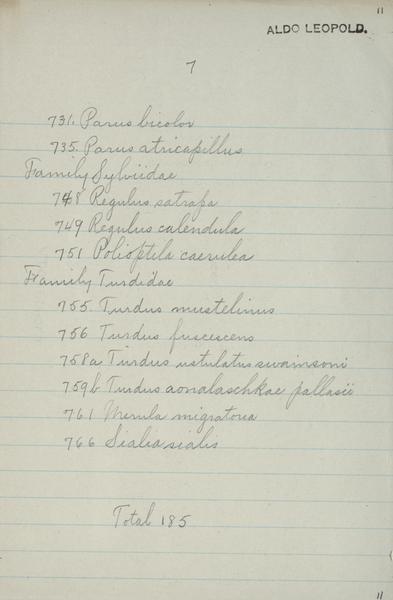 11
ALDO LEOPOLD.
7
731. Parus bicolor
735. Parus atricapillus
Family Sylviidae
748 Regulus satrapa
749 Regulus calendula
751 Polioptila caerulea
Family Turdidae
755 Turdus mustelinus
756 Turdus fuscescens
758a Turdus ustulatus swainsoni
759b Turdus aonalaschkae pallasii
761 Merula migratoria
766 Sialia sialis
Total 185
11